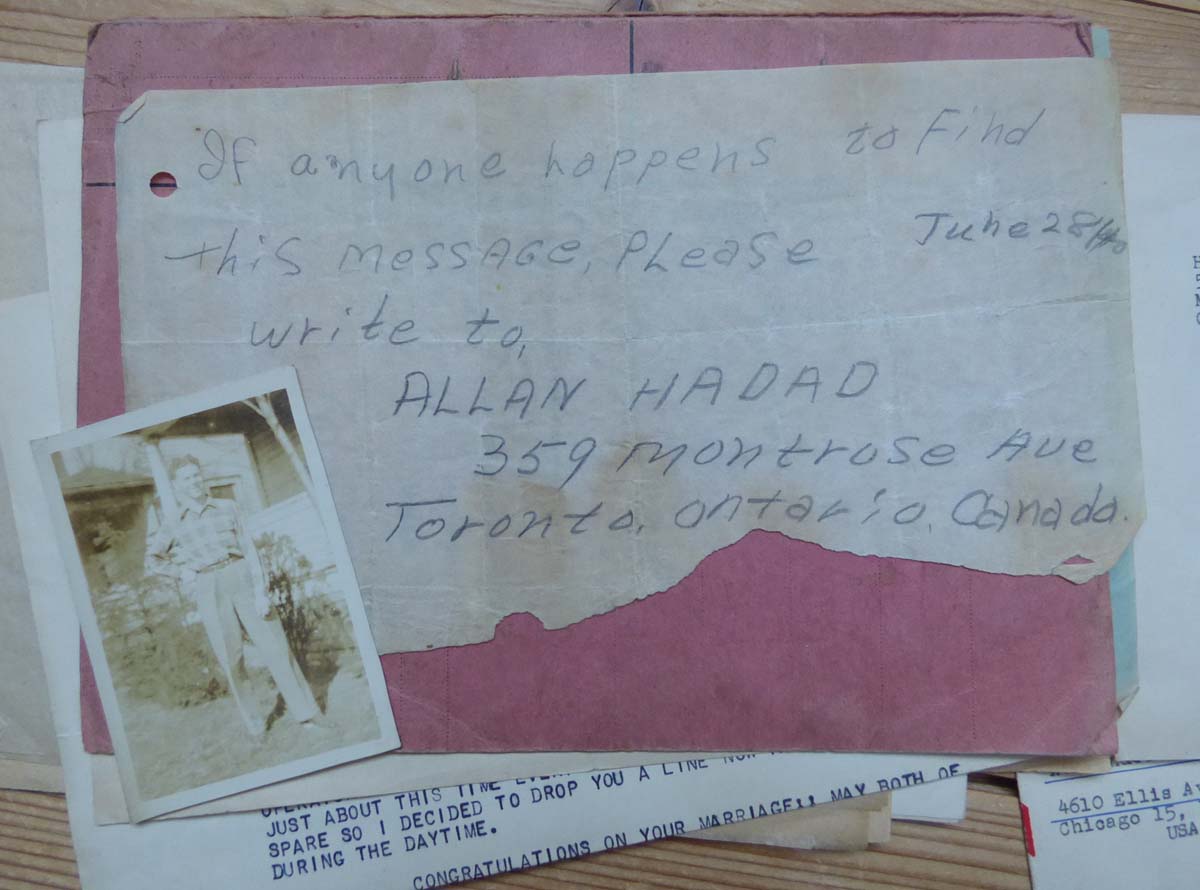 If anyone happens to Find
June 28/40
this MESSAGE, PLEASE
write to,
ALLAN HADAD
359 Montrose Ave
Toronto, Ontario, Canada.
JUST ABOUT THIS TIME
SPARE SO I DECIDED TO DROP YOU A LINE NOW
DURING THE DAYTIME.
CONGRATULATIONS ON YOUR MARRIAGE,, MAY BOTH OF
4610 Ellis
Chicago 15,
USA